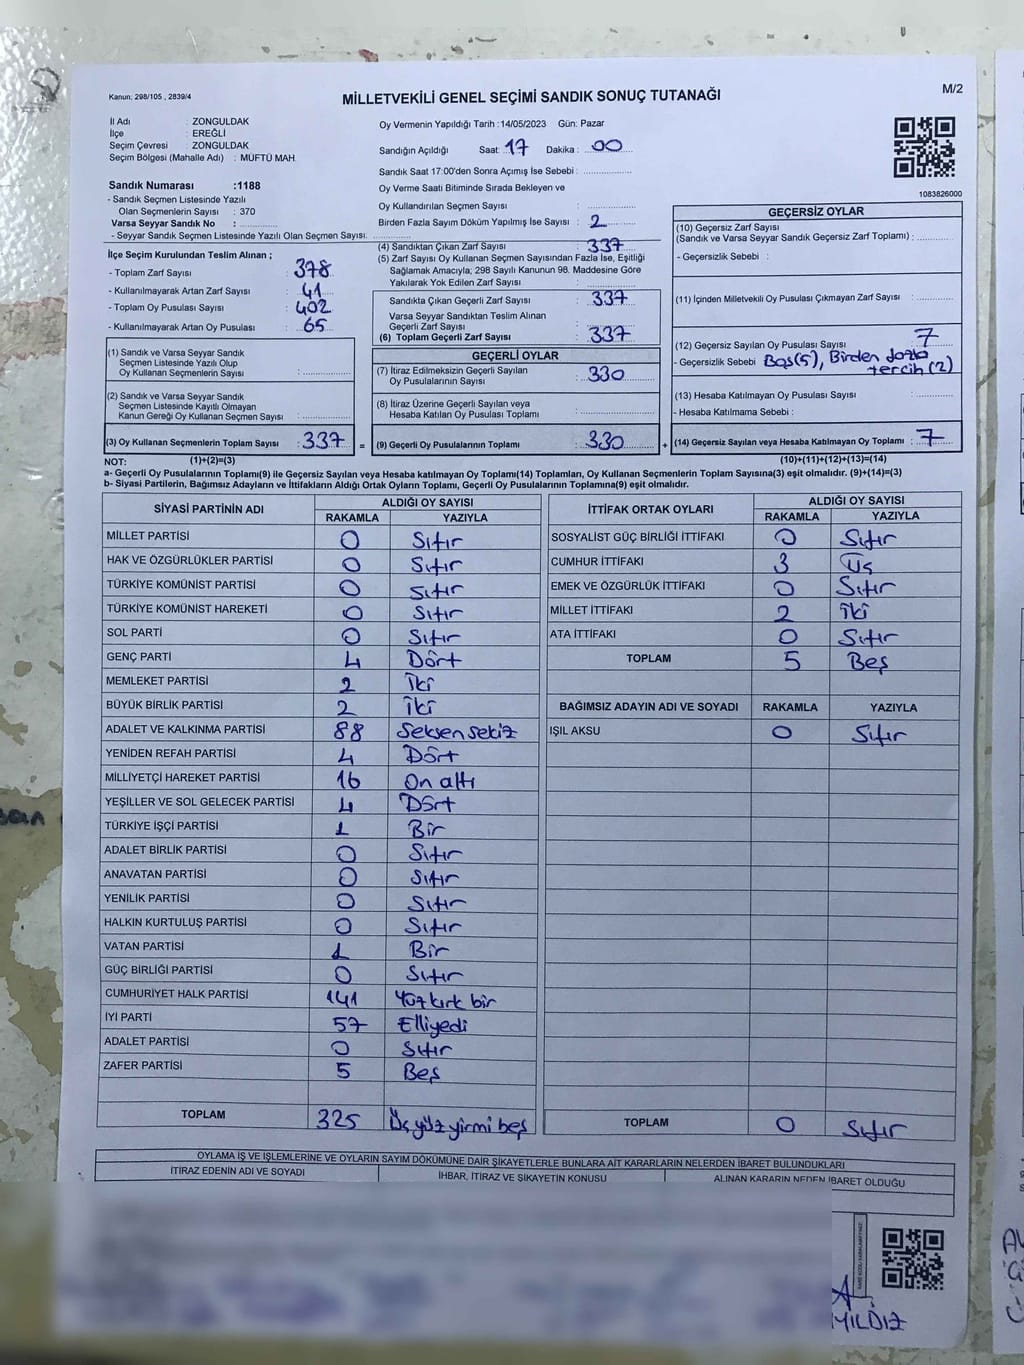 Kanun; 298/105 , 2839/4
MİLLETVEKİLİ GENEL SEÇİMİ SANDIK SONUÇ TUTANAĞI
M/2
İl Adı : ZONGULDAK
İlçe : EREĞLİ
Seçim Çevresi : ZONGULDAK
Seçim Bölgesi (Mahalle Adı) : MÜFTÜ MAH.
Sandık Numarası :1188
- Sandık Seçmen Listesinde Yazılı
Olan Seçmenlerin Sayısı : 370
Varsa Seyyar Sandık No :
- Seyyar Sandık Seçmen Listesinde Yazılı Olan Seçmen Sayısı.
Oy Vermenin Yapıldığı Tarih :14/05/2023 Gün: Pazar
Sandığın Açıldığı Saat: 17 Dakika : 00
Sandık Saat 17:00'den Sonra Açımış İse Sebebi :
Oy Verme Saati Bitiminde Sırada Bekleyen ve
Oy Kullandırılan Seçmen Sayısı :
Birden Fazla Sayım Döküm Yapılmış İse Sayısı : 2
1083826000
İlçe Seçim Kurulundan Teslim Alınan ;
- Toplam Zarf Sayısı : 378
- Kullanılmayarak Artan Zarf Sayısı : 41
- Toplam Oy Pusulası Sayısı : 402
- Kullanılmayarak Artan Oy Pusulası : 65
(1) Sandık ve Varsa Seyyar Sandık
Seçmen Listesinde Yazılı Olup
Oy Kullanan Seçmenlerin Sayısı :
(2) Sandık ve Varsa Seyyar Sandık
Seçmen Listesinde Kayıtlı Olmayan
Kanun Gereği Oy Kullanan Seçmen Sayısı :
(3) Oy Kullanan Seçmenlerin Toplam Sayısı : 337
(4) Sandıktan Çıkan Zarf Sayısı : 337
(5) Zarf Sayısı Oy Kullanan Seçmen Sayısından Fazla İse, Eşitliği
Sağlamak Amacıyla; 298 Sayılı Kanunun 98. Maddesine Göre
Yakılarak Yok Edilen Zarf Sayısı :
Sandıkta Çıkan Geçerli Zarf Sayısı : 337
Varsa Seyyar Sandıktan Teslim Alınan
Geçerli Zarf Sayısı :
(6) Toplam Geçerli Zarf Sayısı : 337
GEÇERLİ OYLAR
(7) İtiraz Edilmeksizin Geçerli Sayılan
Oy Pusulalarının Sayısı : 330
(8) İtiraz Üzerine Geçerli Sayılan veya
Hesaba Katılan Oy Pusulası Toplamı :
= (9) Geçerli Oy Pusulalarının Toplamı : 330
GEÇERSİZ OYLAR
(10) Geçersiz Zarf Sayısı
(Sandık ve Varsa Seyyar Sandık Geçersiz Zarf Toplamı) :
- Geçersizlik Sebebi :
(11) İçinden Milletvekili Oy Pusulası Çıkmayan Zarf Sayısı :
(12) Geçersiz Sayılan Oy Pusulası Sayısı : 7
- Geçersizlik Sebebi Boş(5), Birden fazla
tercih (2)
(13) Hesaba Katılmayan Oy Pusulası Sayısı :
- Hesaba Katılmama Sebebi :
+ (14) Geçersiz Sayılan veya Hesaba Katılmayan Oy Toplamı : 7
NOT: (1)+(2)=(3) (10)+(11)+(12)+(13)=(14)
a- Geçerli Oy Pusulalarının Toplamı(9) ile Geçersiz Sayılan veya Hesaba katılmayan Oy Toplamı(14) Toplamları, Oy Kullanan Seçmenlerin Toplam Sayısına(3) eşit olmalıdır. (9)+(14)=(3)
b- Siyasi Partilerin, Bağımsız Adayların ve İttifakların Aldığı Ortak Oyların Toplamı, Geçerli Oy Pusulalarının Toplamına(9) eşit olmalıdır.
SİYASİ PARTİNİN ADI ALDIĞI OY SAYISI
RAKAMLA YAZIYLA
MİLLET PARTİSİ 0 Sıfır
HAK VE ÖZGÜRLÜKLER PARTİSİ 0 Sıfır
TÜRKİYE KOMÜNİST PARTİSİ 0 Sıfır
TÜRKİYE KOMÜNİST HAREKETİ 0 Sıfır
SOL PARTİ 0 Sıfır
GENÇ PARTİ 4 Dört
MEMLEKET PARTİSİ 2 İki
BÜYÜK BİRLİK PARTİSİ 2 İki
ADALET VE KALKINMA PARTİSİ 88 Seksen sekiz
YENİDEN REFAH PARTİSİ 4 Dört
MİLLİYETÇİ HAREKET PARTİSİ 16 On altı
YEŞİLLER VE SOL GELECEK PARTİSİ 4 Dört
TÜRKİYE İŞÇİ PARTİSİ 1 Bir
ADALET BİRLİK PARTİSİ 0 Sıfır
ANAVATAN PARTİSİ 0 Sıfır
YENİLİK PARTİSİ 0 Sıfır
HALKIN KURTULUŞ PARTİSİ 0 Sıfır
VATAN PARTİSİ 1 Bir
GÜÇ BİRLİĞİ PARTİSİ 0 Sıfır
CUMHURİYET HALK PARTİSİ 141 Yüz kırk bir
İYİ PARTİ 57 Elliyedi
ADALET PARTİSİ 0 Sıfır
ZAFER PARTİSİ 5 Beş
TOPLAM 325 Üç yüz yirmi beş
İTTİFAK ORTAK OYLARI ALDIĞI OY SAYISI
RAKAMLA YAZIYLA
SOSYALİST GÜÇ BİRLİĞİ İTTİFAKI 0 Sıfır
CUMHUR İTTİFAKI 3 Üç
EMEK VE ÖZGÜRLÜK İTTİFAKI 0 Sıfır
MİLLET İTTİFAKI 2 İki
ATA İTTİFAKI 0 Sıfır
TOPLAM 5 Beş
BAĞIMSIZ ADAYIN ADI VE SOYADI RAKAMLA YAZIYLA
IŞIL AKSU 0 Sıfır
TOPLAM 0 Sıfır
OYLAMA İŞ VE İŞLEMLERİNE VE OYLARIN SAYIM DÖKÜMÜNE DAİR ŞİKAYETLERLE BUNLARA AİT KARARLARIN NELERDEN İBARET BULUNDUKLARI
İTİRAZ EDENİN ADI VE SOYADI İHBAR, İTİRAZ VE ŞİKAYETİN KONUSU ALINAN KARARIN NEDEN İBARET OLDUĞU
YILDIZ